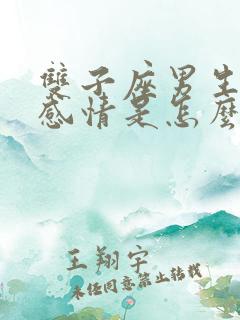 雙子座男生
感情是怎麼
王翔宇
未经同意禁止转载